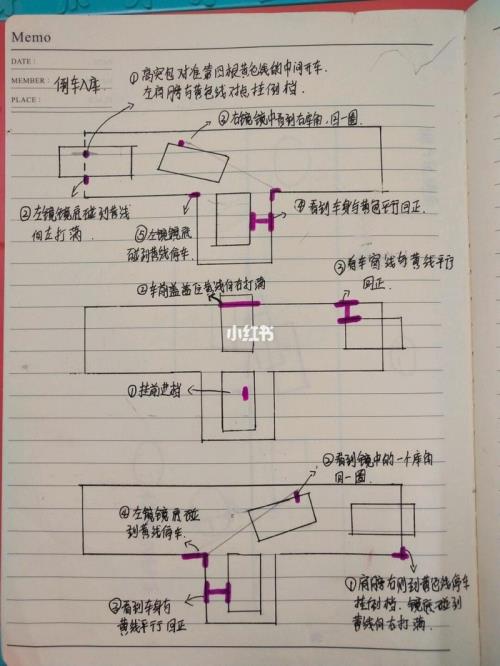 Memo
DATE:
MEMBER: 倒车入库
PLACE:
①高突包对准第四根黄色线的中间开车.
左肩膀与黄色线对抡挂倒档.
③右镜镜中看到右库角,回一圈
②左镜镜底碰到黄线
向左打满.
⑤左镜镜底
碰到黄线停车.
④看到车身与黄包平行回正.
②车前盖盖住黄线向右打满
③看车窗线与黄线平行
回正.
小红书
①挂前进挡
②看到镜中的一个库角
回一圈.
④左镜镜底碰
到黄线停车.
③看到车身与
黄线平行回正
①肩膀右侧到黄色线停车
挂倒档.镜底碰到
黄线向右打满.